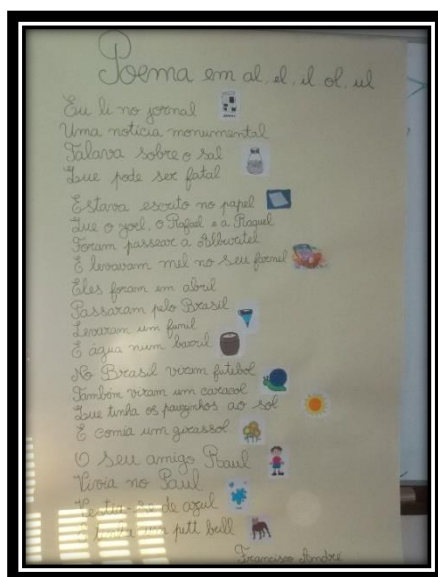 Poema em al, el, il ol, ul
Eu li no jornal
Uma notícia monumental
Falava sobre o sal
Que pode ser fatal
Estava escrito no papel
Que o Joel, o Rafael e a Raquel
Foram passear a Alburitel
E levavam mel no seu farnel
Eles foram em abril
Passaram pelo Brasil
Levaram um funil
E água num barril
No Brasil viram futebol
Também viram um caracol
Que tinha os pauzinhos ao sol
E comia um girassol
O seu amigo Raul
Vivia no Paul
Vestia-se de azul
E um pitt bull
Francisco André